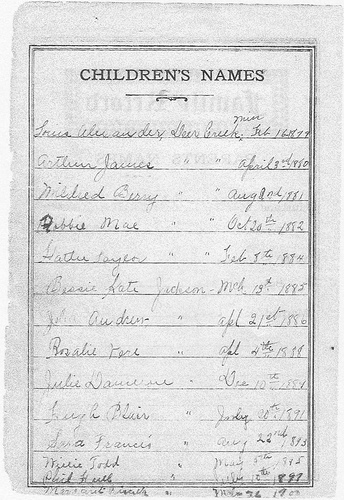 CHILDREN'S NAMES
Louis Alexander, Deer Creek, Miss Feb 16 1879
Arthur James " " April 3rd 1880
Mildred Berry " " Aug 2nd 1881
Debbie Mae " " Oct 20th 1882
Hattie Taylor " " Feb 8th 1884
Bessie Kate Jackson - Mch 13th 1885
John Andrew " Apl 21st 1886
Rosalie Vere " Apl 4th 1888
Julie Damerone " Dec 10th 1889
Hugh Blair " July 20th 1891
Sara Francis " Aug 22nd 1893
Willie Todd " May 5th 1895
Keith " 1897
Margaret " 26 1900